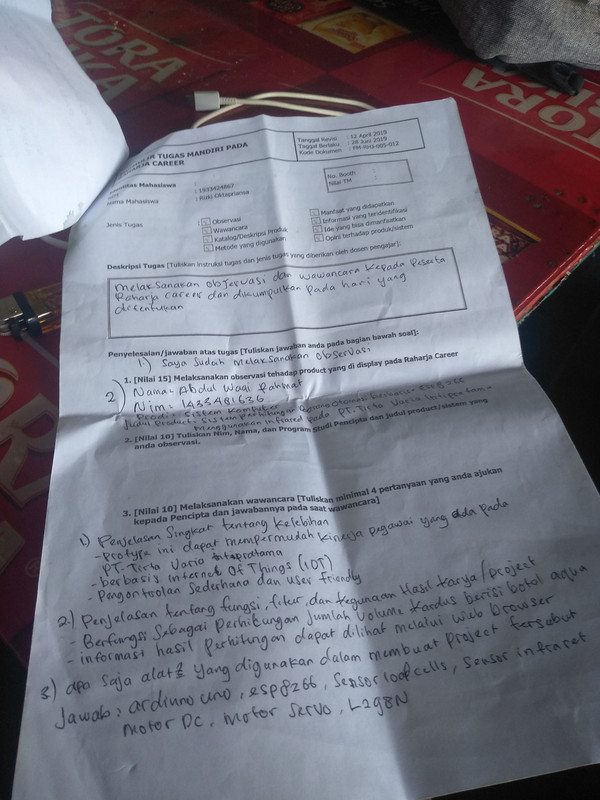 TORA
TORA
TUGAS MANDIRI PADA
CAREER
Tanggal Revisi : 12 April 2019
Tanggal Berlaku : 28 Juni 2019
Kode Dokumen : FM-RHJ-005-012
Identitas Mahasiswa
: 1933424867
Nama Mahasiswa : Rizki Oktaprianda
No. Booth :
Nilai TM :
Jenis Tugas : Observasi
Wawancara
Katalog/Deskripsi Produk
Metode yang digunakan
Manfaat yang didapatkan
Informasi yang teridentifikasi
Ide yang bisa dimanfaatkan
Opini terhadap produk/sistem
Deskripsi Tugas [Tuliskan instruksi tugas dan jenis tugas yang diberikan oleh dosen pengajar]:
melaksanakan observasi dan wawancara kepada peserta
Raharja career dan dikumpulkan pada hari yang
ditentukan
Penyelesaian/jawaban atas tugas [Tuliskan jawaban anda pada bagian bawah soal]:
1.) Saya sudah melaksanakan observasi
1. [Nilai 15] Melaksanakan observasi tehadap product yang di display pada Raharja Career
2) Nama: Abdul Waqi Rahmat
Nim: 1433481636
Prodi: Sistem Komputer
Judul Product: Sistem Perhitungan
menggunakan infrared pada PT. Tirta Varia Intipratama
2. [Nilai 10] Tuliskan Nim, Nama, dan Program Studi Pencipta dan judul product/sistem yang
anda observasi.
3. [Nilai 10] Melaksanakan wawancara [Tuliskan minimal 4 pertanyaan yang anda ajukan
kepada Pencipta dan jawabannya pada saat wawancara]
1) Penjelasan Singkat tentang kelebihan
- protype ini dapat mempermudah kinerja pegawai yang ada pada
PT. Tirta Varia intipratama
- berbasis Internet Of Things (IOT)
- Pengontrolan Sederhana dan user friendly
2) Penjelasan tentang fungsi, fitur, dan kegunaan Hasil karya/project
- Berfungsi Sebagai Perhitungan Jumlah Volume kardus berisi botol aqua
- informasi hasil Perhitungan dapat dilihat melalui web browser
3) apa saja alat2 yang digunakan dalam membuat Project tersebut
Jawab: ardiuno uno, esp8266, sensor loadcells, Sensor infraret
motor DC, motor Servo, L298N